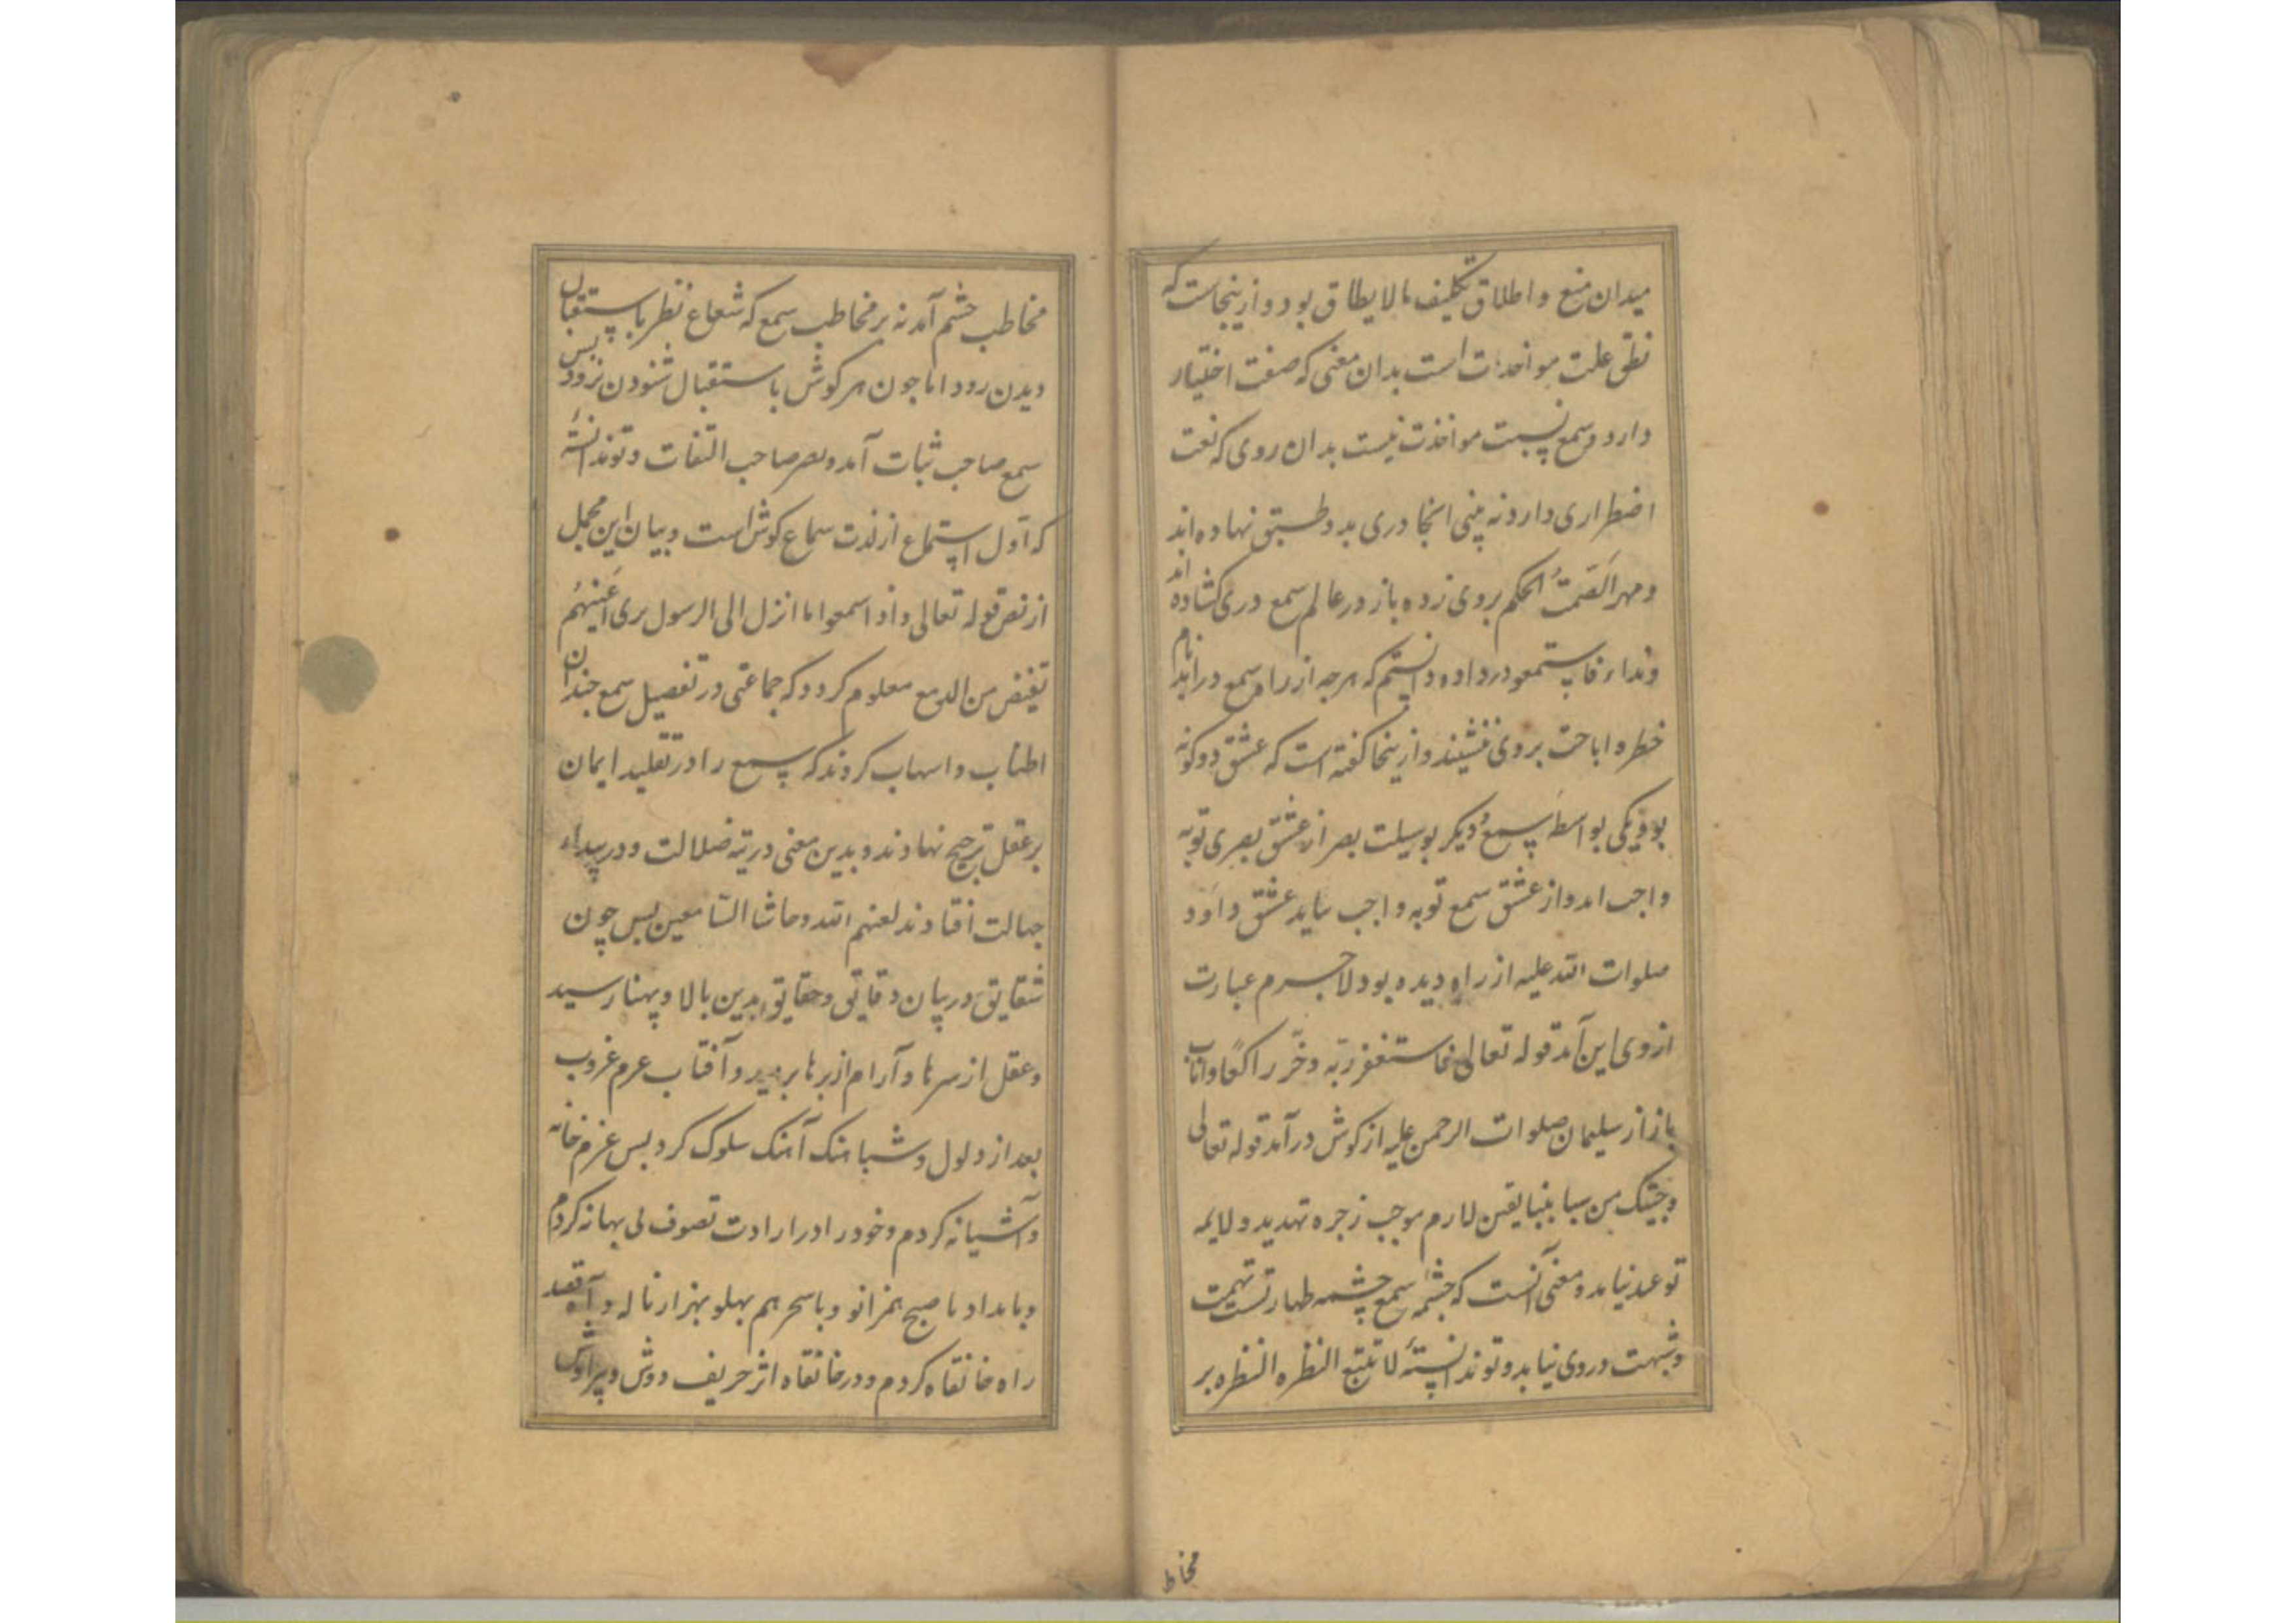 میدان منع و اطلاق تکلیف مالایطاق بود و ازینجاست که
نطق علت مواخذت است بدان معنی که صفت اختیار
دارد و سمع نسبت مواخذت نیست بدان روی که نعت
اضطراری دارد نه بینی انجا دری بدو طبق نهاده اند
و مهر الصمت الحکم بروی زده باز در عالم سمع دری کشاده اند
و نداء فاستمعو در داده دانستم که هرچه از راه سمع در آید نام
خطر و اباحت بروی ننشیند و ازینجا کفته است که عشق دو کونه
بود یکی بواسطه سمع و دیکر بوسیلت بصر از عشق بصری توبه
واجب امد و از عشق سمع توبه واجب نیاید عشق داود
صلوات الله علیه از راه دیده بود لاجرم عبارت
از وی این آمد قوله تعالی فاستغفر ربه وخر راکعا واناب
باز از سلیمان صلوات الرحمن علیه از کوش در آمد قوله تعالی
وجیتک من سبا بنبا یقین لارم موجب زجره تهدید و لایمه
توعد نیامد و معنی آنست که چشمه سمع چشمه طهارتست تهمت
و شبهت در وی نیاید و تو ندانسته لا تتبع النظره النظره بر
مخاط
مخاطب چشم آمد نه بر مخاطب سمع که شعاع نظر باستقبال
دیدن رود اما چون هر کوش باستقبال شنودن نرود پس
سمع صاحب ثبات آمد و بصر صاحب التفات و تو ندانسته
که اول استماع از لذت سماع کوش است و بیان این مجمل
از نص قوله تعالی واذا سمعوا ما انزل الی الرسول تری اعینهم
تفیض من الدمع معلوم کردد که جماعتی در تفصیل سمع چندان
اطناب و اسهاب کردند که سمع را در تقلید ایمان
بر عقل ترجیح نهادند و بدین معنی در تیه ضلالت و در بیداء
جهالت افتادند لعنهم الله وحاشا السامعین پس چون
شقایق در بیان دقایق و حقایق بدین بالا و پهنا رسید
و عقل از سرها و آرام از برها برمید و آفتاب عزم غروب
بعد از دلول و شباهنک آهنک سلوک کرد پس عزم خانه
و آشیانه کردم و خود را در ارادت تصوف بی بهانه کردم
و بامداد با صبح همزانو و با سحر هم پهلو بهزار ناله و آه قصد
راه خانقاه کردم و در خانقاه اثر حریف دوش و پیراوش